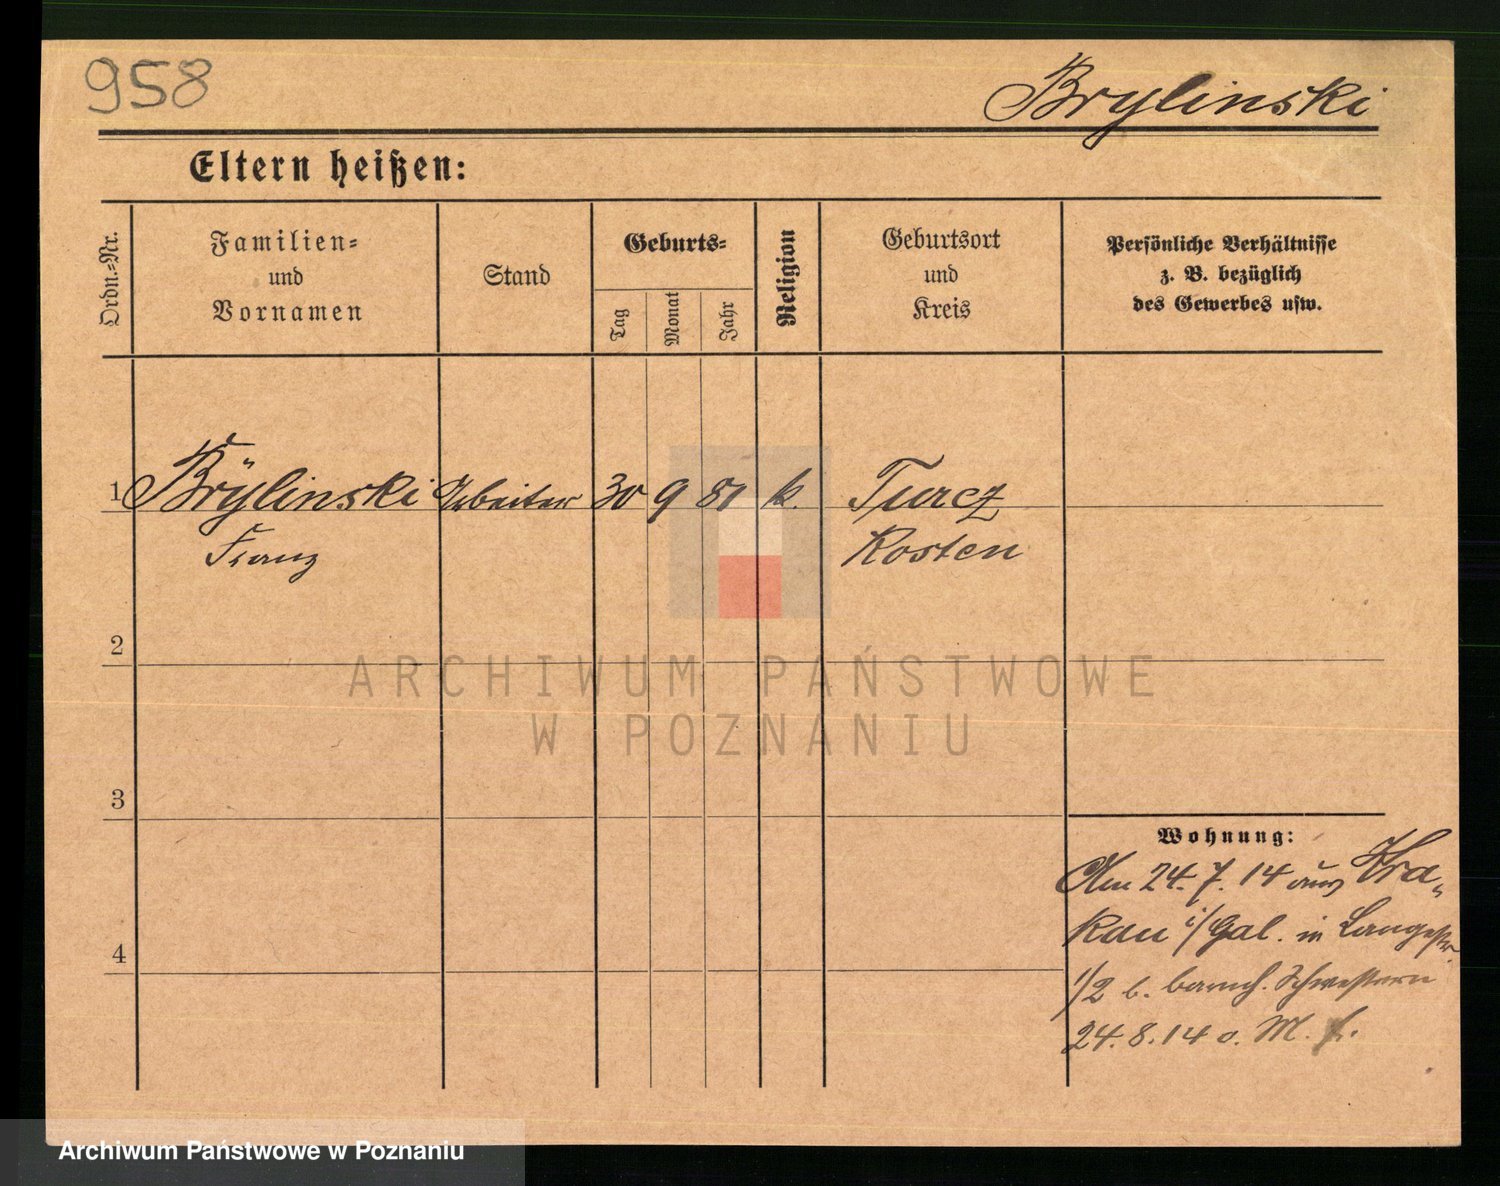 958
Brylinski
Eltern heißen:
Ordn.=Nr.
Familien=
und
Vornamen
Stand
Geburts=
Tag
Monat
Jahr
Religion
Geburtsort
und
Kreis
Persönliche Verhältnisse
z. B. bezüglich
des Gewerbes usw.
1 Brÿlinski Arbeiter 30 9 81 k. Turez
Franz Kosten
2
ARCHIWUM PAŃSTWOWE
W POZNANIU
3
Wohnung:
Am 24. 7. 14 aus Kra-
kau i/Gal. in Langestr.
1/2 b. barmh. Schwestern
24. 8. 14 o. M.
4
Archiwum Państwowe w Poznaniu